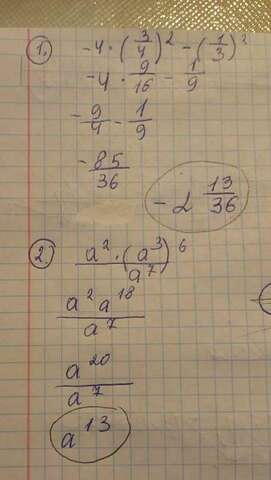 1. -4 · (3/4)² - (1/3)²
-4 · 9/16 - 1/9
-9/4 - 1/9
-85/36
-2 13/36
2. a² · (a³)⁶ / a⁷
a² a¹⁸ / a⁷
a²⁰ / a⁷
a¹³